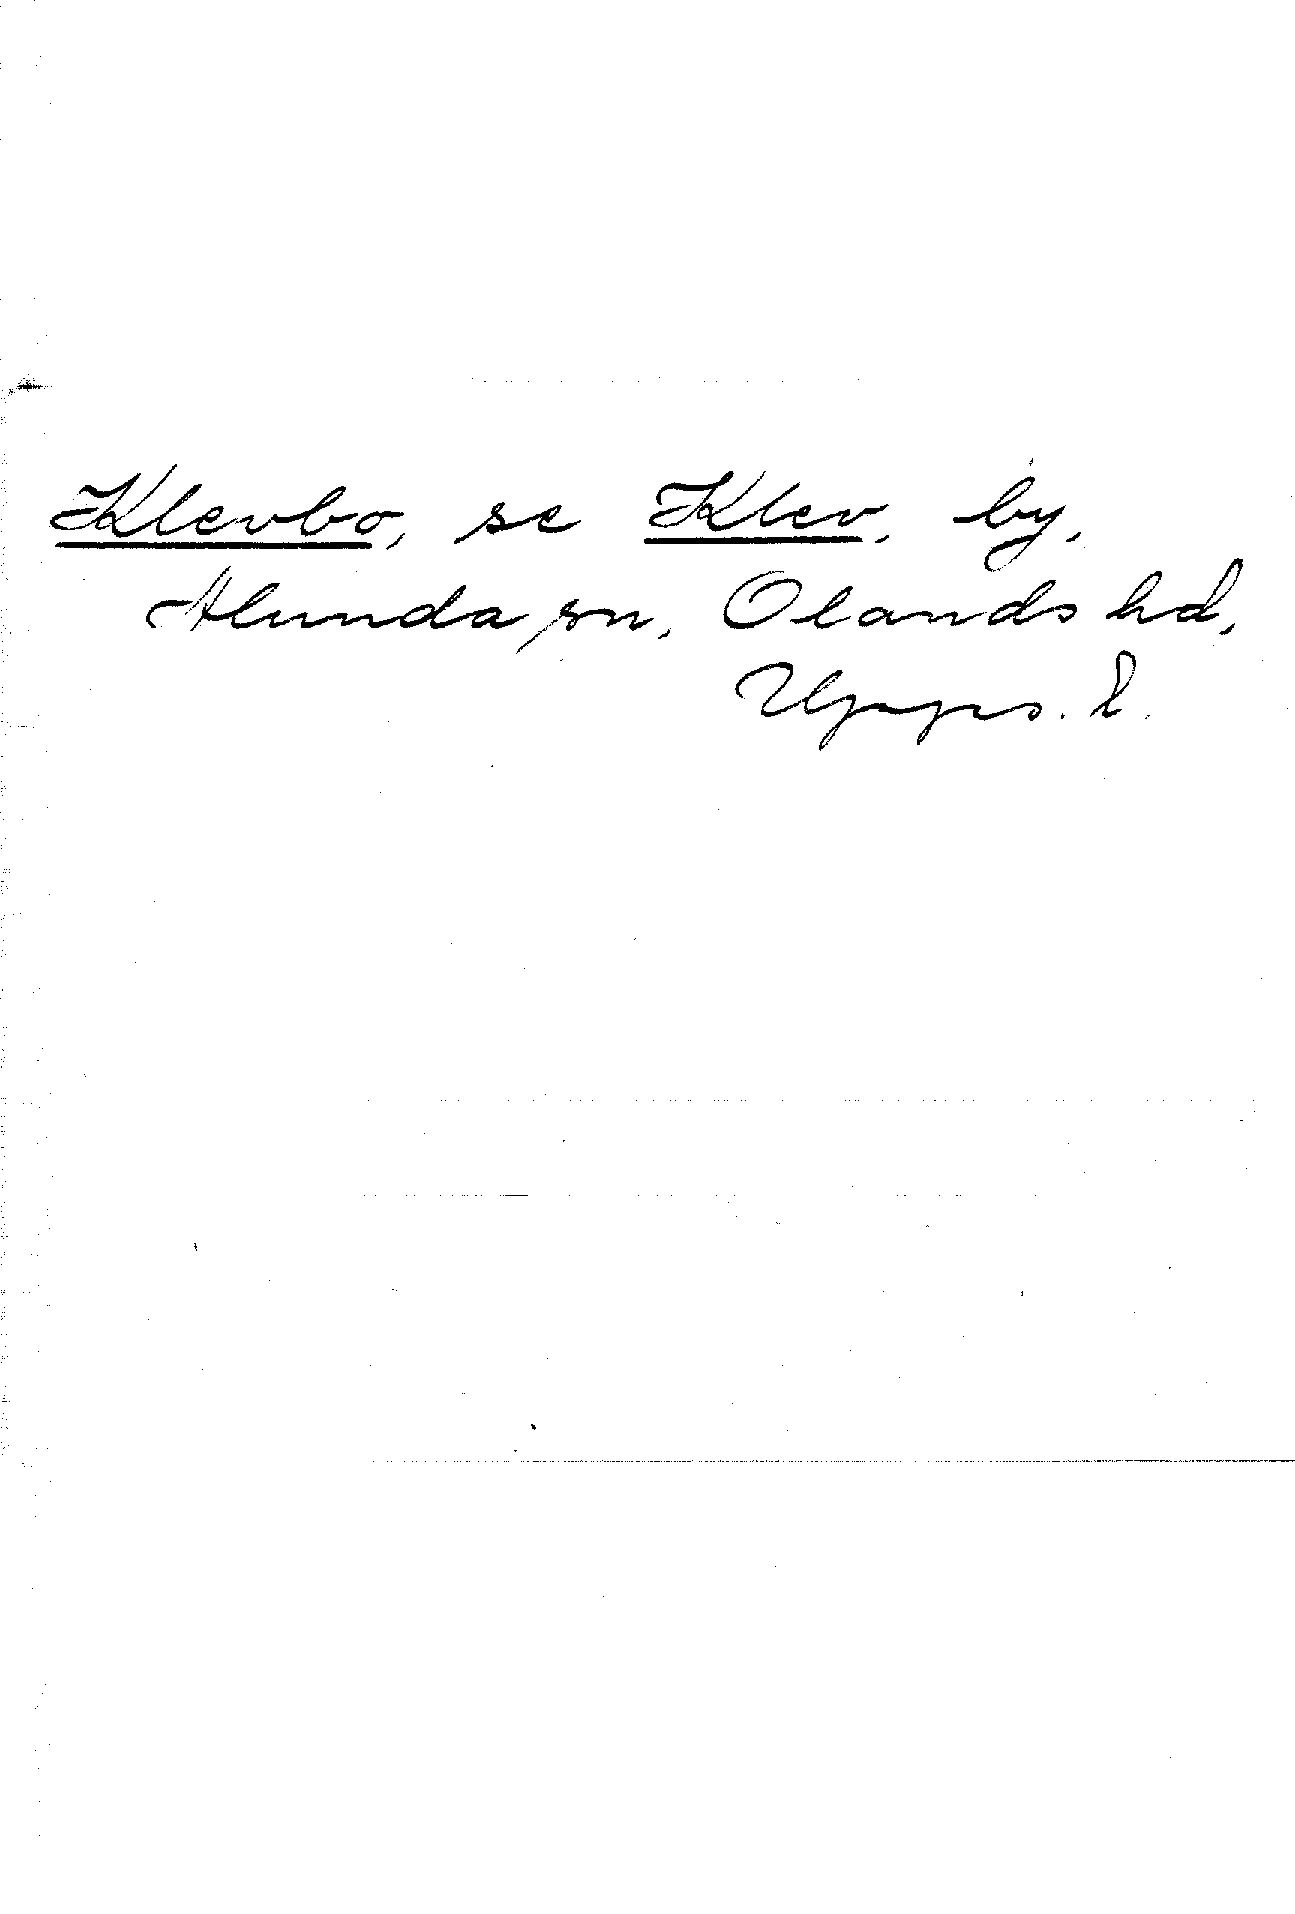 Klevbo, se Klev, by,
Alunda sn, Olands hd,
Upps. l.